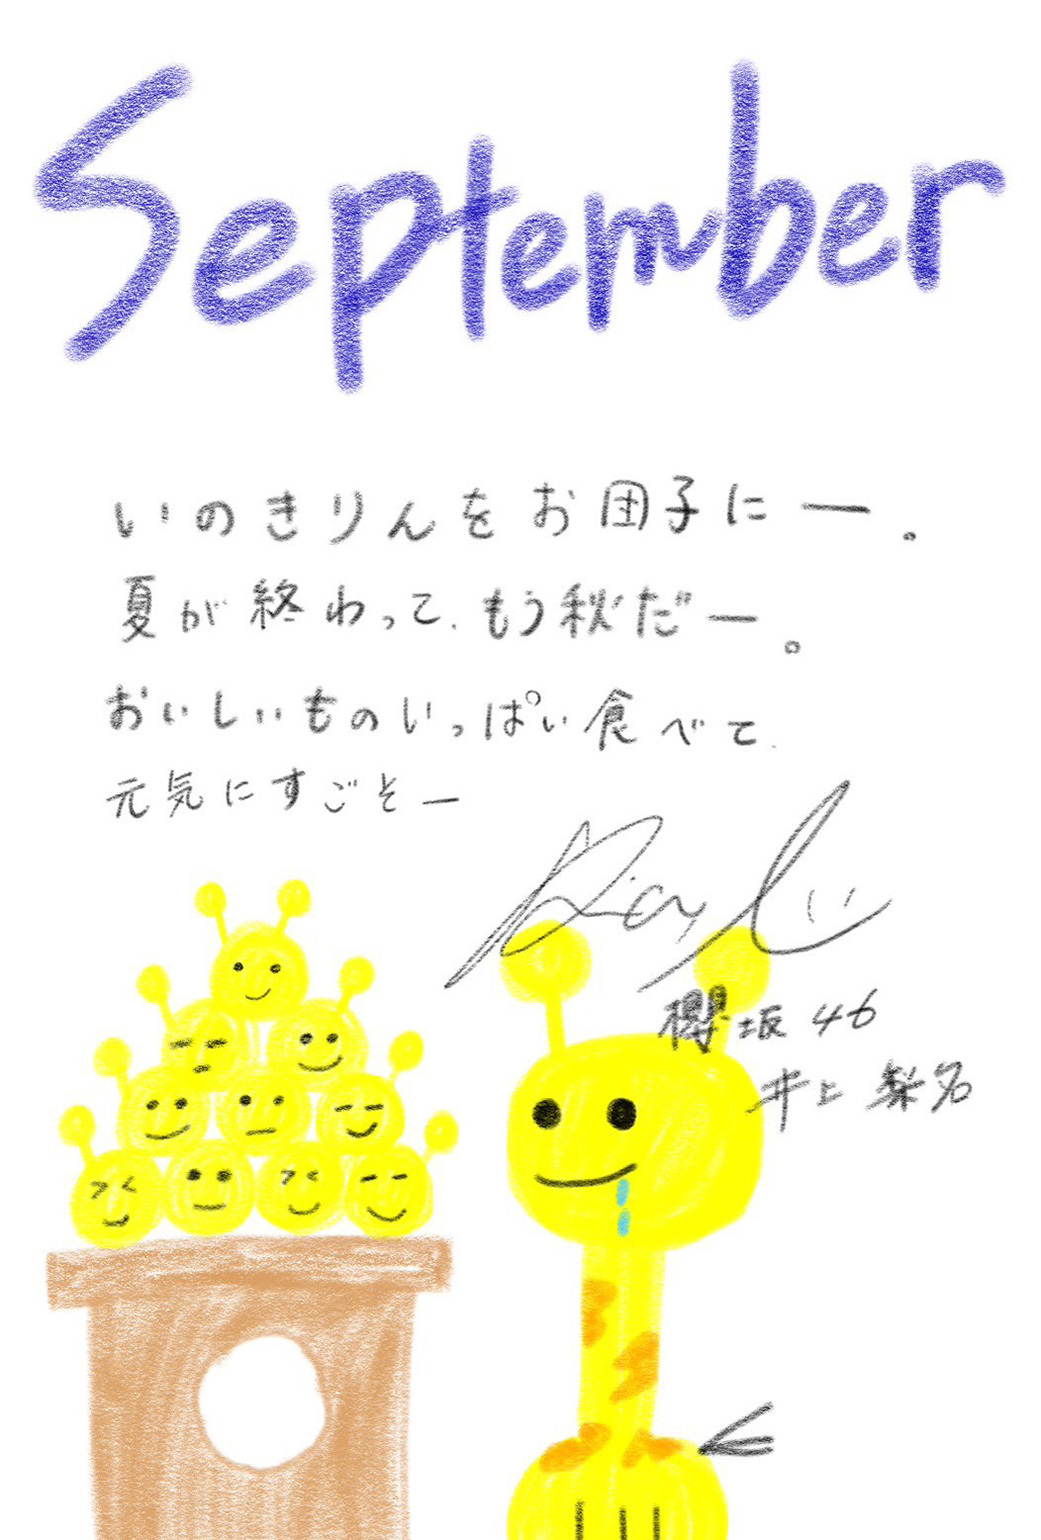 September
いのきりんをお団子にー。
夏が終わって、もう秋だー。
おいしいものいっぱい食べて、
元気にすごそー
櫻坂46
井上梨名